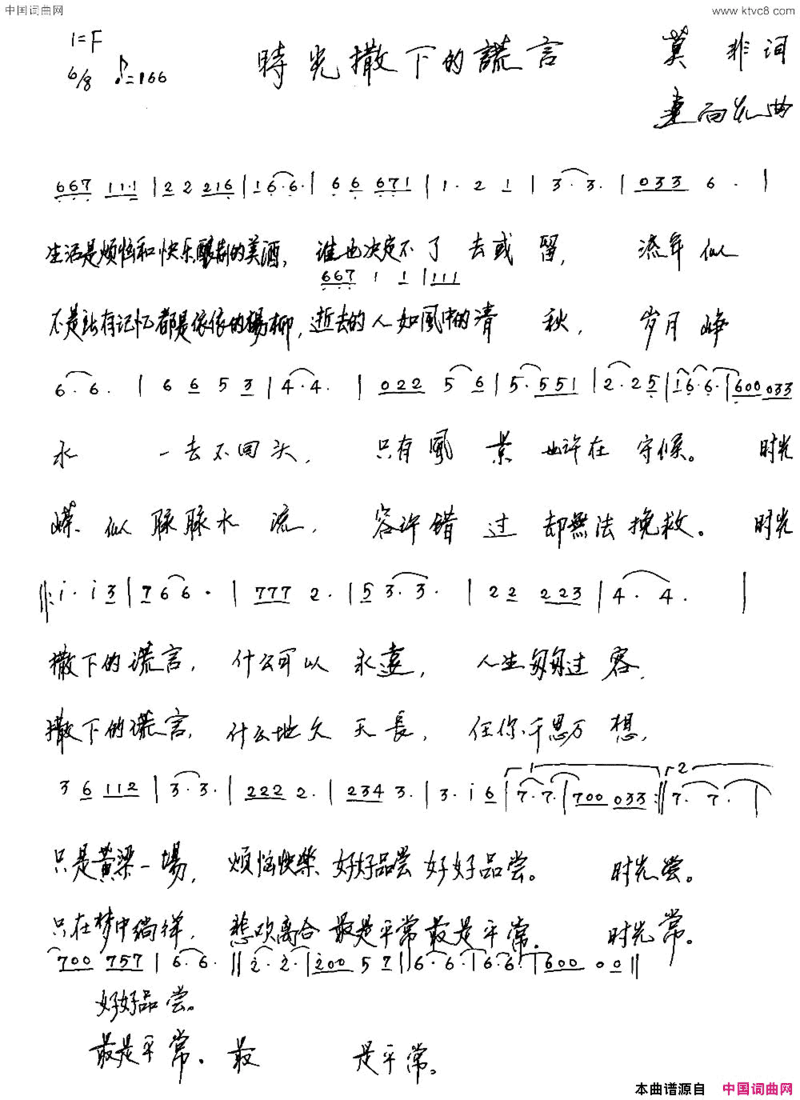 中国词曲网 www.ktvc8.com
1=F
6/8 ♪=166
時光撒下的謊言
莫非词
曲
667 111 | 22 216 | 16·6· | 66 671 | 1· 2 1 | 3· 3· | 033 6· |
生活是烦恼和快乐酿制的美酒，谁也决定不了去或留，流年似
667 1 1 | 111
不是所有记忆都是依依的楊柳，逝去的人如風中的清秋，岁月峥
6· 6· | 6 6 5 3 | 4· 4· | 022 5 6 | 5· 551 | 2· 25 | 16·6· | 600 033
水 一去不回头，只有風景也许在守候。时光
嵘似脉脉水流，容许错过却無法挽救。时光
‖: i· i 3 | 7 6 6· | 777 2· | 5 3· 3· | 22 223 | 4· 4· |
撒下的谎言，什么可以永遠，人生匆匆过客，
撒下的谎言，什么地久天長，任你千思万想，
3 6 112 | 3· 3· | 222 2· | 234 3· | 3· i 6 | 1 7· 7· | 700 033 :‖ 2 7· 7· |
只是黄梁一場，烦恼快樂 好好品尝 好好品尝。时光尝。
只在梦中徜徉，悲欢离合 最是平常 最是平常。时光常。
700 757 | 6· 6· ‖ 2· 2· | 200 5 7 | 6· 6· | 6· 6· | 600 0 0 ‖
好好品尝。
最是平常。最 是平常。
本曲谱源自 中国词曲网